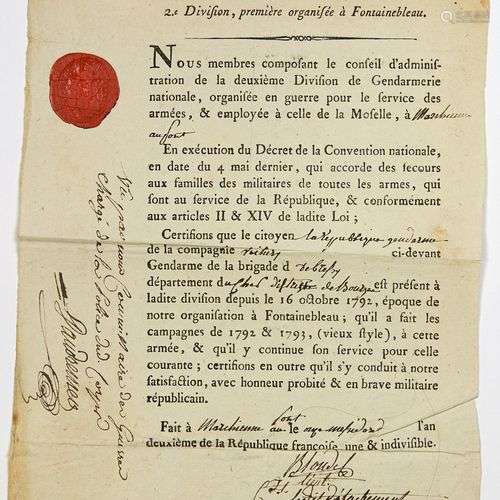 2.e Division, première organisée à Fontainebleau.
Nous membres composant le conseil d'adminis-
tration de la deuxième Division de Gendarmerie
nationale, organisée en guerre pour le service des
armées, & employée à celle de la Moselle, à Marchienne
au pont
En exécution du Décret de la Convention nationale,
en date du 4 mai dernier, qui accorde des secours
aux familles des militaires de toutes les armes, qui
sont au service de la République, & conformément
aux articles II & XIV de ladite Loi ;
Certifions que le citoyen la République gendarme
de la compagnie ci-devant
Gendarme de la brigade d
département du est présent à
ladite division depuis le 16 octobre 1792, époque de
notre organisation à Fontainebleau ; qu'il a fait les
campagnes de 1792 & 1793, (vieux style), à cette
armée, & qu'il y continue son service pour celle
courante ; certifions en outre qu'il s'y conduit à notre
satisfaction, avec honneur probité & en brave militaire
républicain.
Fait à Marchienne au pont le messidor l'an
deuxième de la République françoise, une & indivisible.
détachement
Vu par nous Commissaire des Guerres
Chargé de la Police du Corps